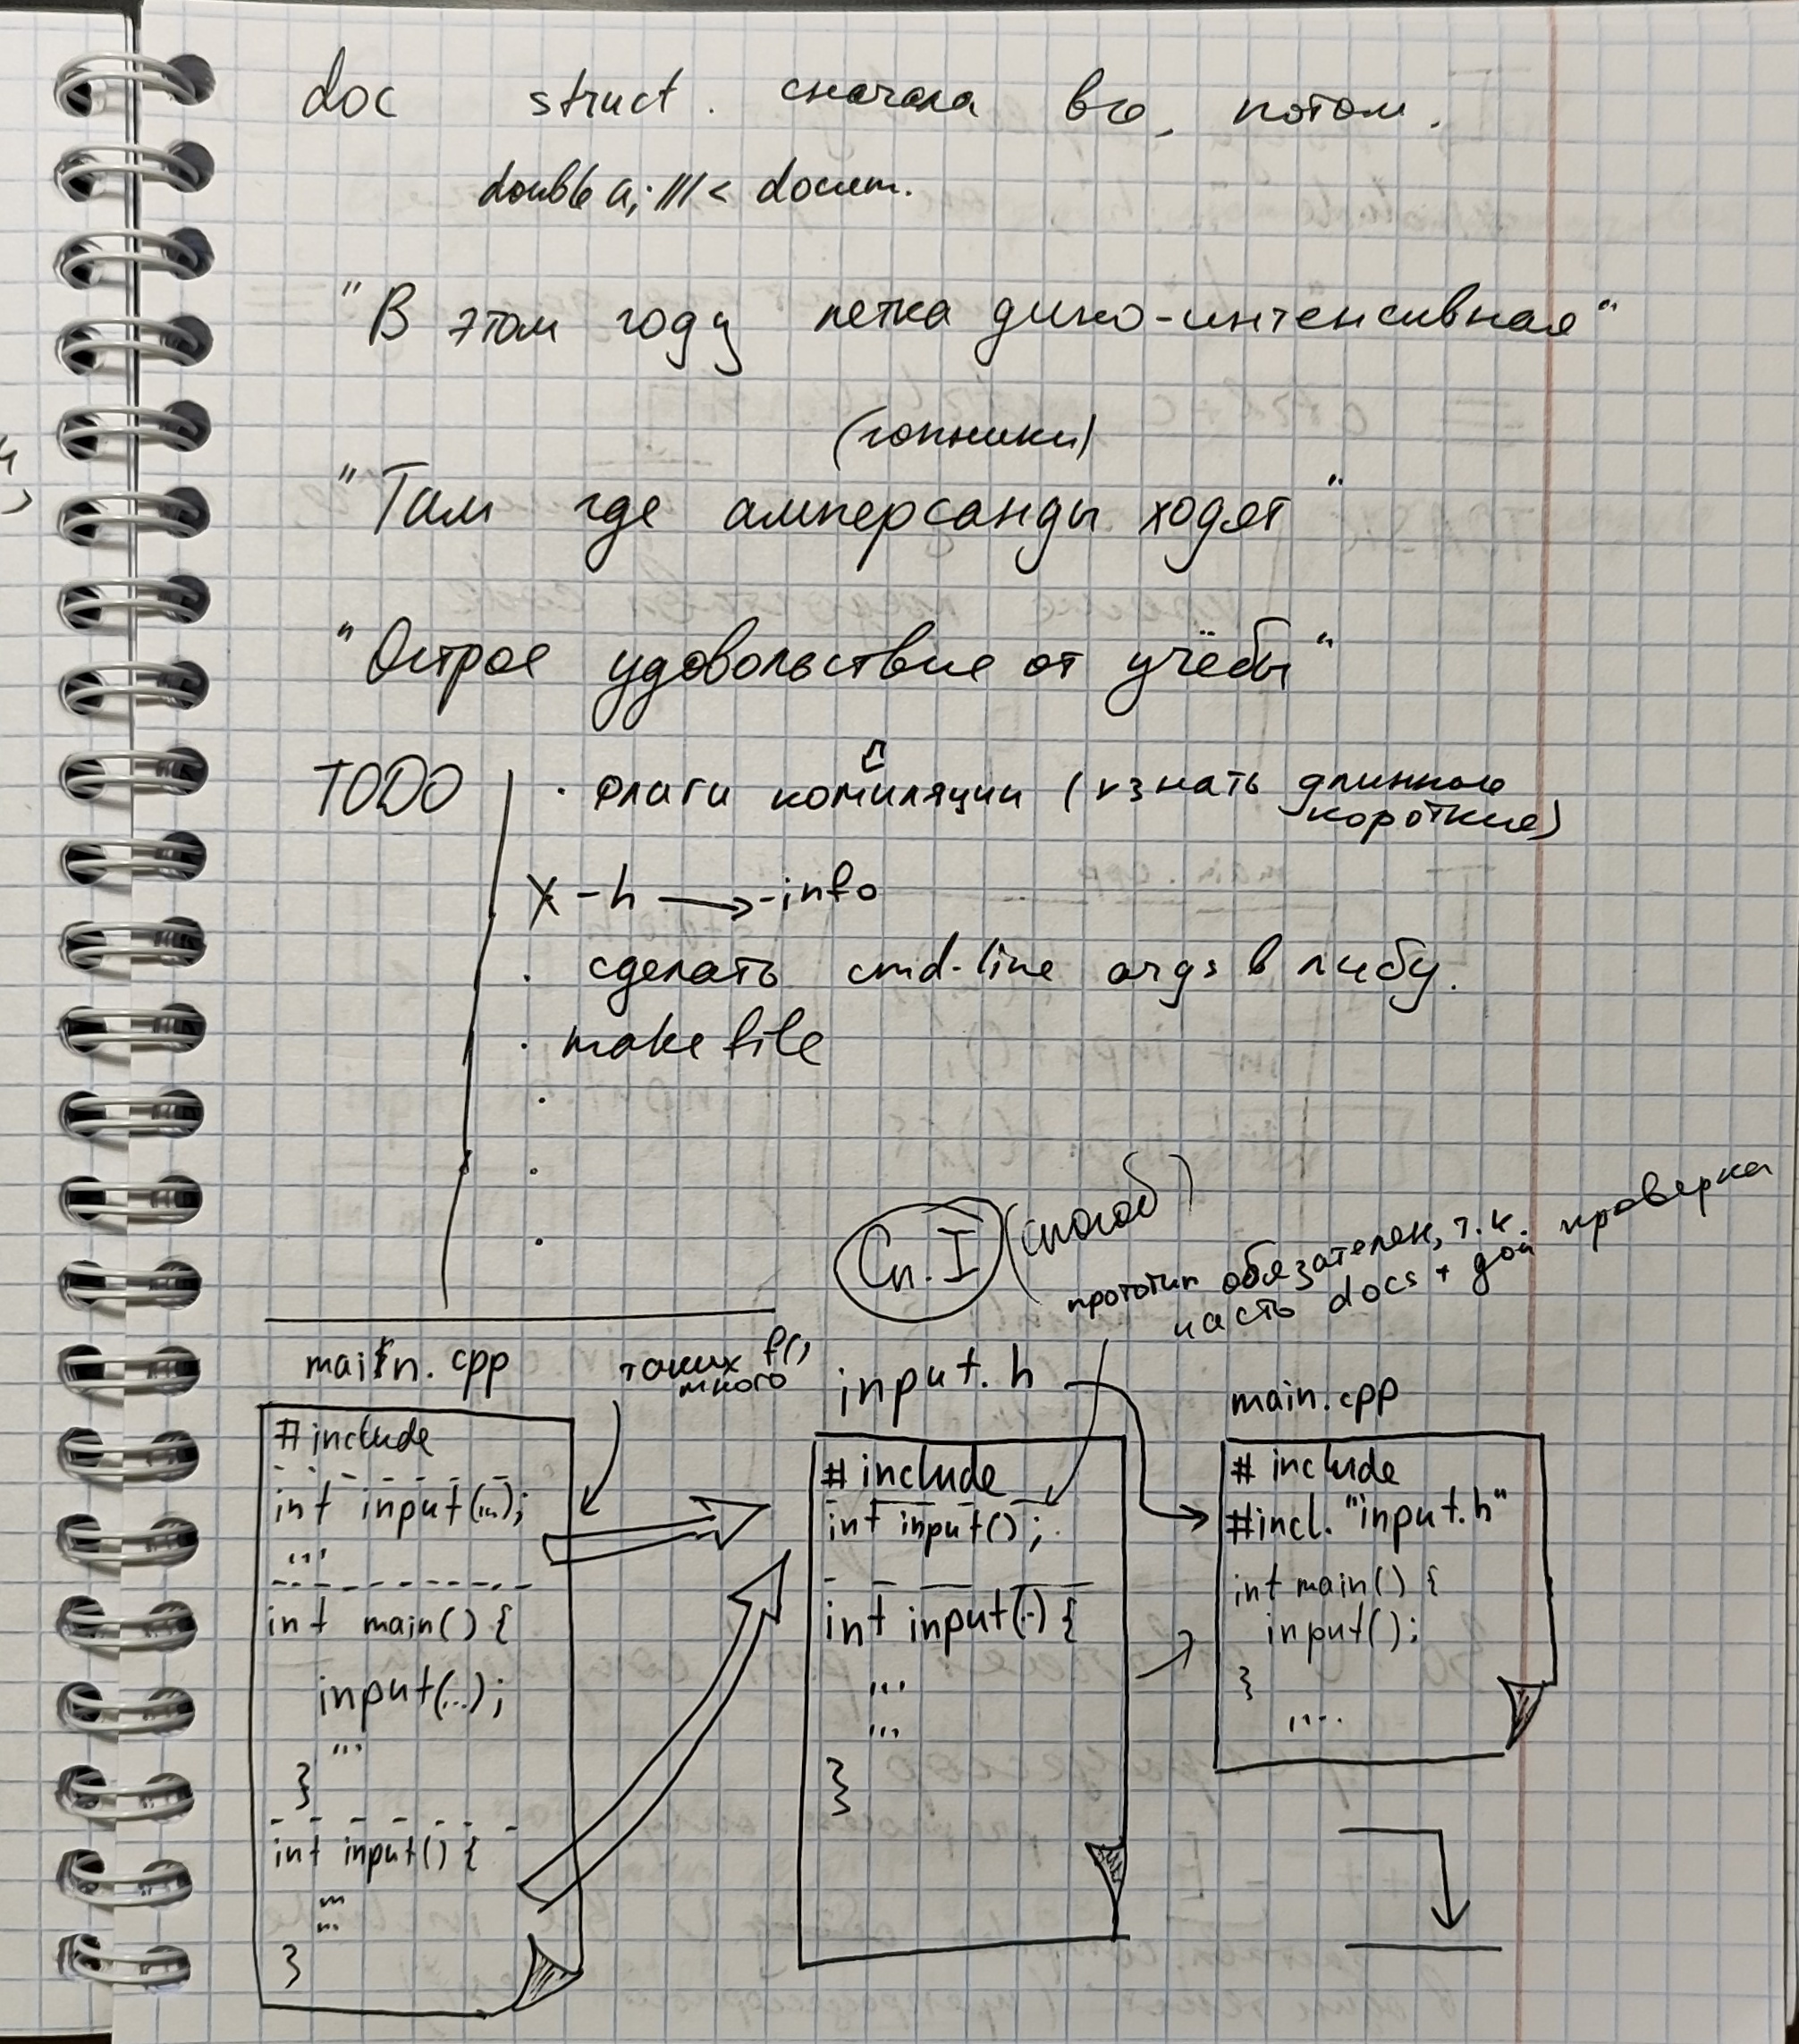 doc struct. сначала вю, потом.
double a; ///< docum.
"В этом году летка дико-интенсивная"
(гопники)
"Там где амперсанды ходят"
"Острое удовольствие от учёбы"
TODO
· флаги комиляции (узнать длинные
п
короткие)
X -h → -info
· сделать cmd-line args в либу.
· makefile
Сп. I (способ)
прототип обязателен, т.к.
часть docs + доп. проверка
main.cpp
таких f(),
много
#include
int input(...);
...
int main() {
input(...);
...
}
int input() {
...
...
}
input.h
#include
int input();
int input(..) {
...
...
}
main.cpp
# include
#incl. "input.h"
int main() {
input();
}
....